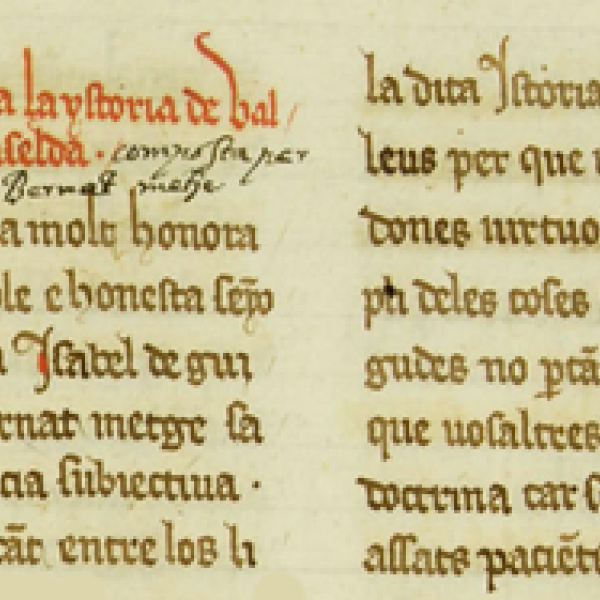 a la ystoria de val
selda. composta per
Bernat metge
a molt honora
ble e honesta seyo
Isabel de gui
rnat metge sa
cia subiectiua.
tāt entre los li
la dita Istoria
leus per que
dones uirtuo
ph deles coses
gudes no ꝑtā
que uosaltres
doctrina car s
assats paciēt